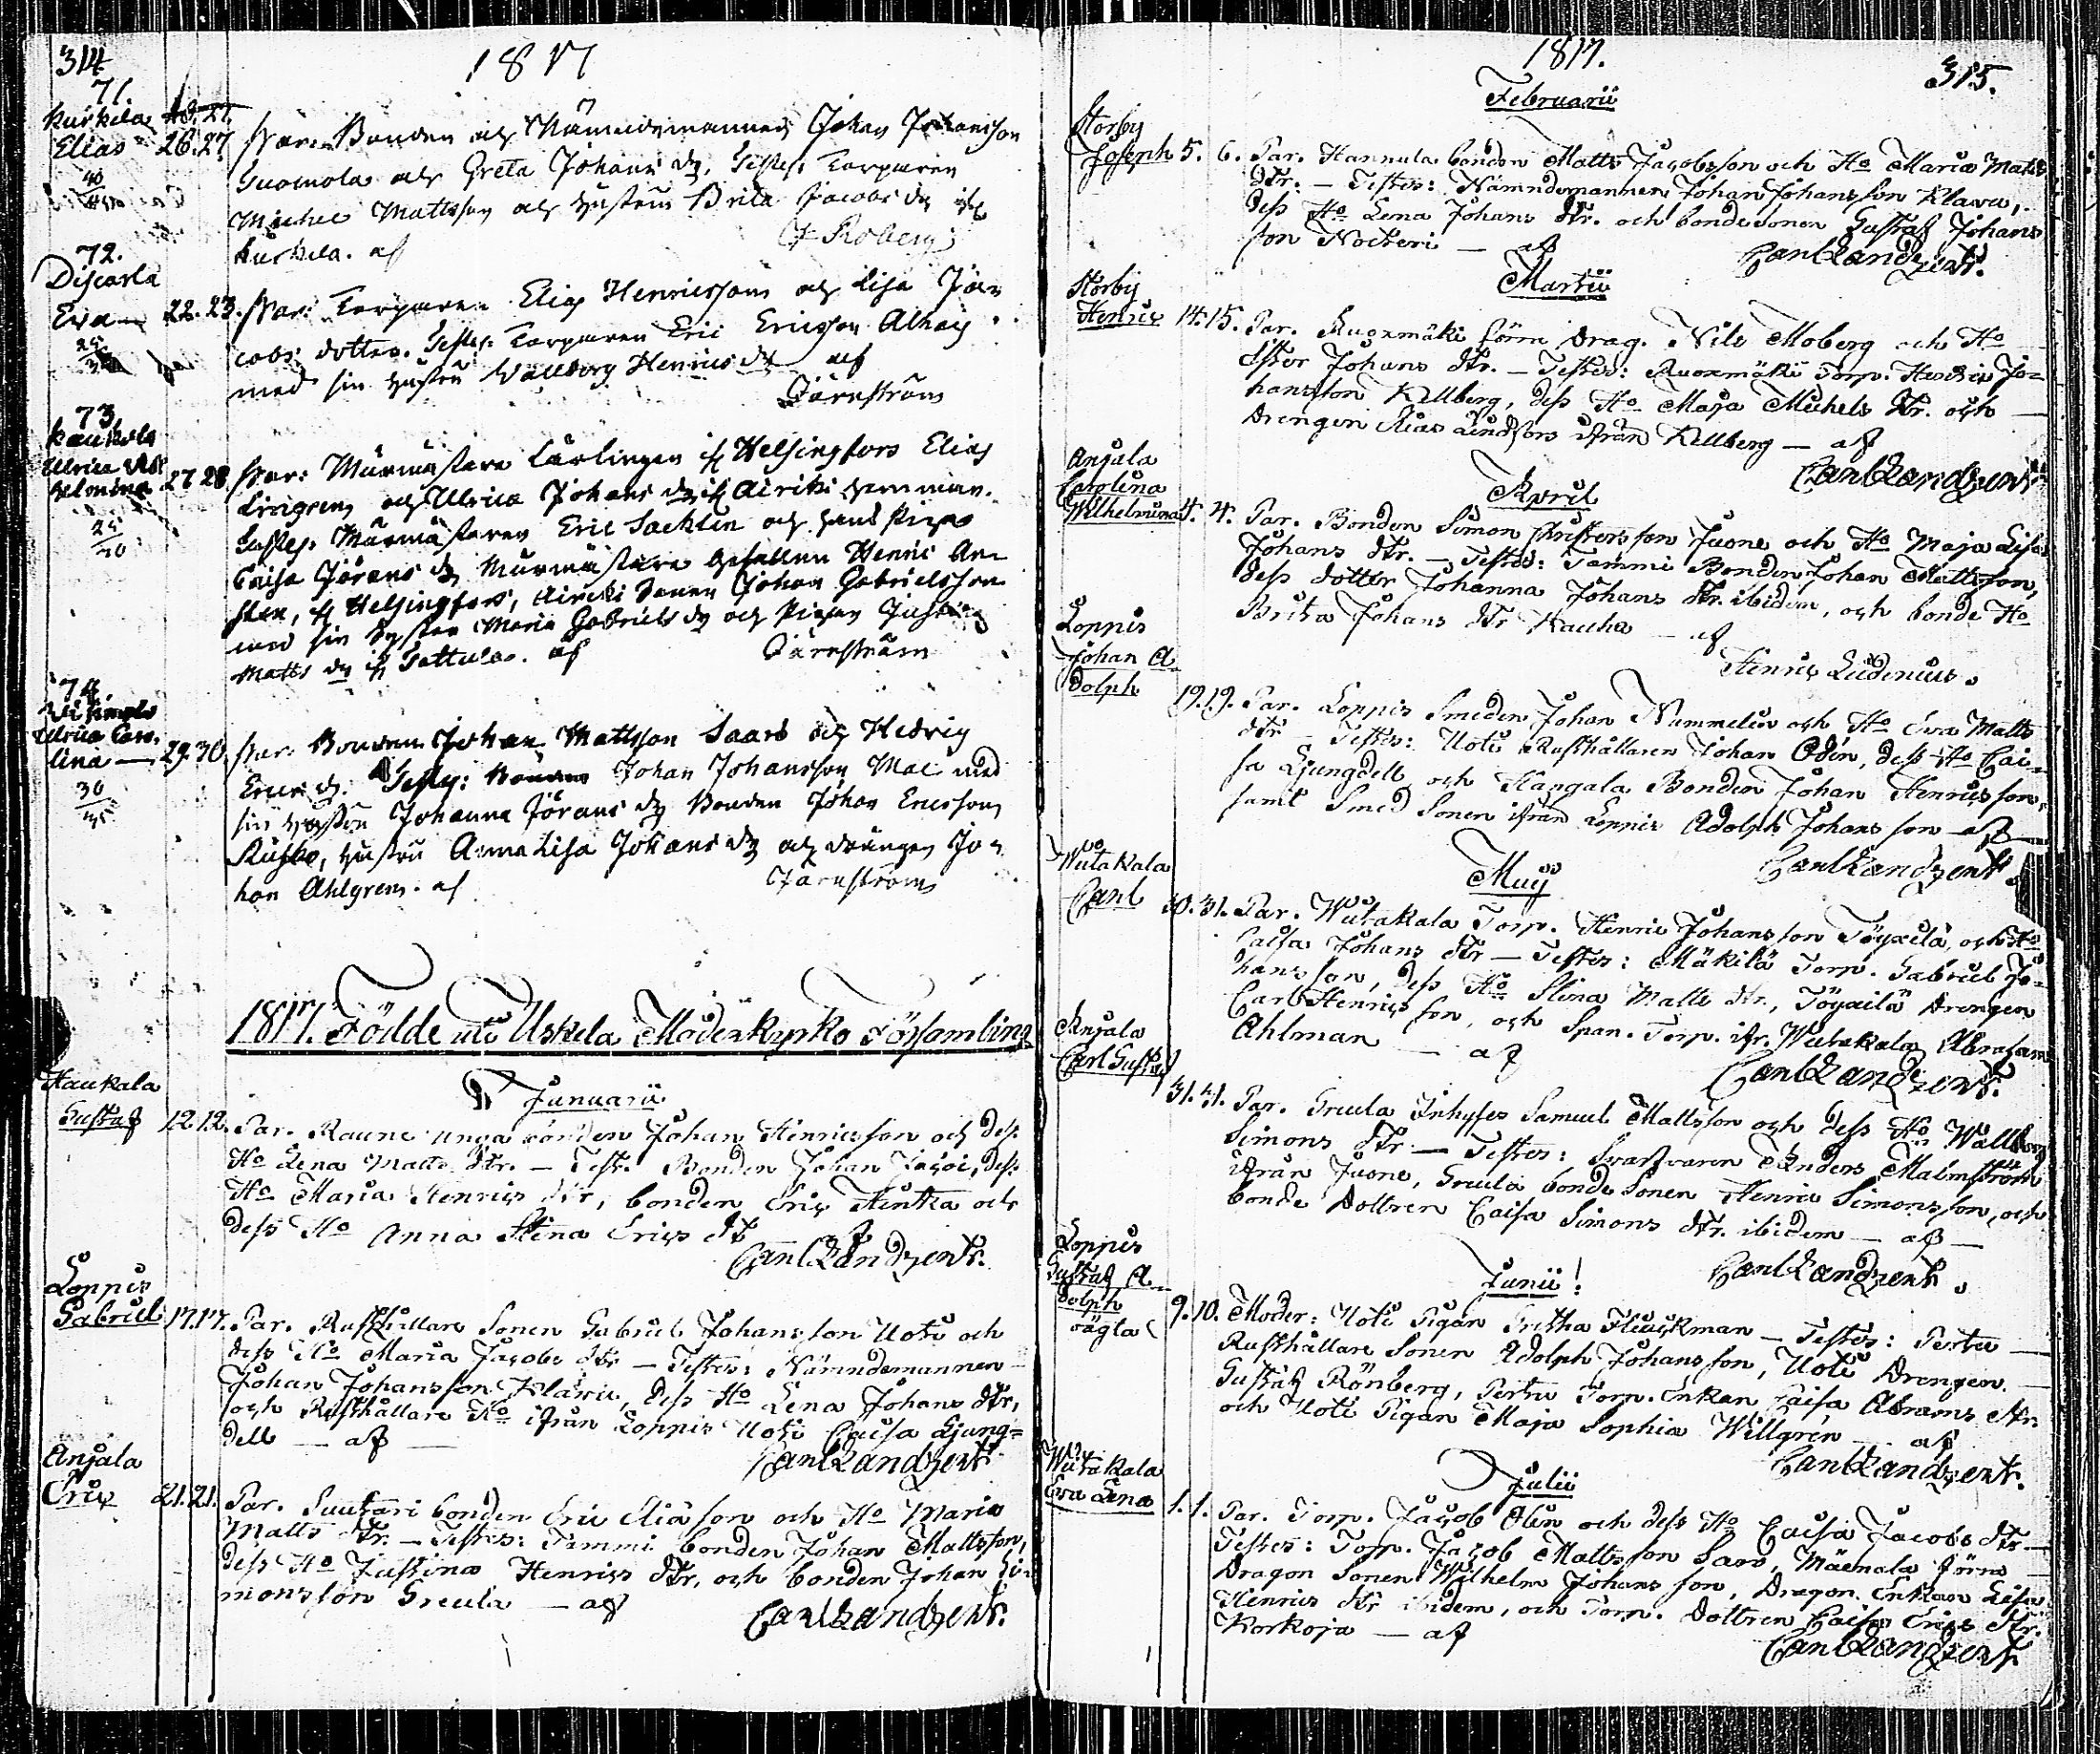 314
1817
71.
Kurkela 26.27.
Elias 26.27 Par. Bonden och Nämndemannen Johan Johansson
Suomola och Greta Johans dr. Testes: Torparen
Michel Mattsson och hustru Brita Jacobs dr if
Kurkela. af
72.
Discarla
Eva 22.23. Par: Torparen Elias Henricsson och Lisa Ja=
cobs dotter. Testes: Torparen Eric Ericsson Alhay
med sin hustru Walborg Henrics dr af
Järnström
73.
Kaukola
Ulrica
27 28 Par: Murmästare Lärlingen if Helsingfors Elias
Lingren och Ulrica Johans dr if
Testes: Murmästaren Eric och
Caisa Jörans dr Murmästare Gesällen Henric
if Helsingfors, Sonen Johan Gabrielsson
med sin Syster Maria Gabriels dr och Pigan Justina
Matts dr if af Järnström
74.
Ulrica Caro=
lina 29.30 Par: Bonden Johan Mattsson Saari och Hedvig
Erics dr. Testes: Bonden Johan Johansson med
sin hustru Johanna Jörans dr Bonden Johan Ericsson
hustru Anna Lisa Johans dr och drängen Jo=
han Ahlgren. af Järnström
1817. Födde uti Uskela Moderkyrko Församling
Januarii
Haukala
Gustaf 12.12. Par. Raune unga bonden Johan Henricsson och dess
Ho Lena Matts dtr. — Test. Bonden Johan dess
Ho Maria Henrics dtr, bonden Eric Hentka och
dess Ho Anna Stina Erics dtr af
Carl Landzent.
Loppis
Gabriel 17.17. Par. Rusthållare Sonen Gabriel Johansson Uoti och
dess Ho Maria Jacobs dtr — Testes: Nämndemannen
Johan Johansson Klavu, dess Ho Lena Johans dtr,
och Rusthållare Ho ifrån Loppis Uoti Caisa Ljung=
dell — af —
Carl Landzent.
Anjala
Eric 21.21. Par. Suutari bonden Eric Eliasson och Ho Maria
Matts dtr. — Testes: Tammi bonden Johan Mattsson,
dess Ho Justina Henrics dtr, och bonden Johan Si=
monsson Greula — af
Carl Landzent.
1817.
315.
Februarii
Storby
Joseph 5. 6. Par. Hannula bonden Matts Jacobsson och Ho Maria Matts
dtr. — Testes: Nämndemannen Johan Johansson Klavu,
dess Ho Lena Johans dtr. och bondesonen Gustaf Johans
son Nockeri — af
Carl Landzent.
Martii
Storby
Henric 14.15. Par. Ruoxmäki förra Drag. Nils Moberg och Ho
Ester Johans dtr. — Testes: Ruoxmäki Torp. Henric Jo=
hansson Kellberg, dess Ho Maja Michels dtr. och
Drengen Elias Lindfors ifrån Kellberg — af
Carl Landzent
April
Anjala
Carolina
Wilhelmina 4. 4. Par. Bonden Simon Christersson Juone och Ho Maja Lisa
Johans dtr. — Testes: Tammi Bonden Johan Mattsson,
dess dotter Johanna Johans dtr. ibidem, och bonde Ho
Britha Johans dtr Hauha — af
Henric Lidenius.
Loppis
Johan A=
dolph 19.19. Par. Loppis Smeden Johan Nummelin och Ho Eva Matts
dtr — Testes: Uoti Rusthållaren Johan Odin, dess Ho Cai=
sa Ljungdell och Hangala Bonden Johan Henricsson,
samt Smed Sonen ifrån Loppis Adolph Johansson — af
Carl Landzent.
Maij
Wutakala
Carl 30.31. Par. Wutakala Torp. Henric Johansson Töyxilä, och Ho
Caisa Johans dtr — Testes: Mäkilä Torp. Gabriel Jo=
hansson, dess Ho Stina Matts dtr., Töyxilä Drengen
Carl Henricsson, och Span. Torp. ifr. Wutakala Abraham
Ahlman — af
Carl Landzent.
Anjala
Carl Gustaf
31.31. Par. Greula Inhyses Samuel Mattsson och dess Ho Wallborg
Simons dtr — Testes: Svarfvaren Anders Malmström
ifrån Juone, Greula bonde Sonen Henric Simonsson, och
bonde Dottren Caisa Simons dtr. ibidem — af —
Carl Landzent.
Junii!
Loppis
Gustaf A=
dolph
oägta 9.10. Moder: Uoti Pigan Gretha — Testes: Pertu
Rusthållare Sonen Adolph Johansson, Uoti Drengen
Gustaf Rönberg, Pertu Torp. Enkan Caisa Abrams dtr.
och Uoti Pigan Maja Sophia Willgren — af
Carl Landzent.
Julii
Wutakala
Eva Lena 1. 1. Par. Torp. Jacob Olin och dess Ho Caisa Jacobs dtr —
Testes: Torp. Jacob Mattsson Saro, Mäenala förra
Dragon Sonen Wilhelm Johansson, Dragon Enkan Lisa
Henrics dtr ibidem, och Torp. Dottren Caisa Erics dtr.
Korkoja — af
Carl Landzent